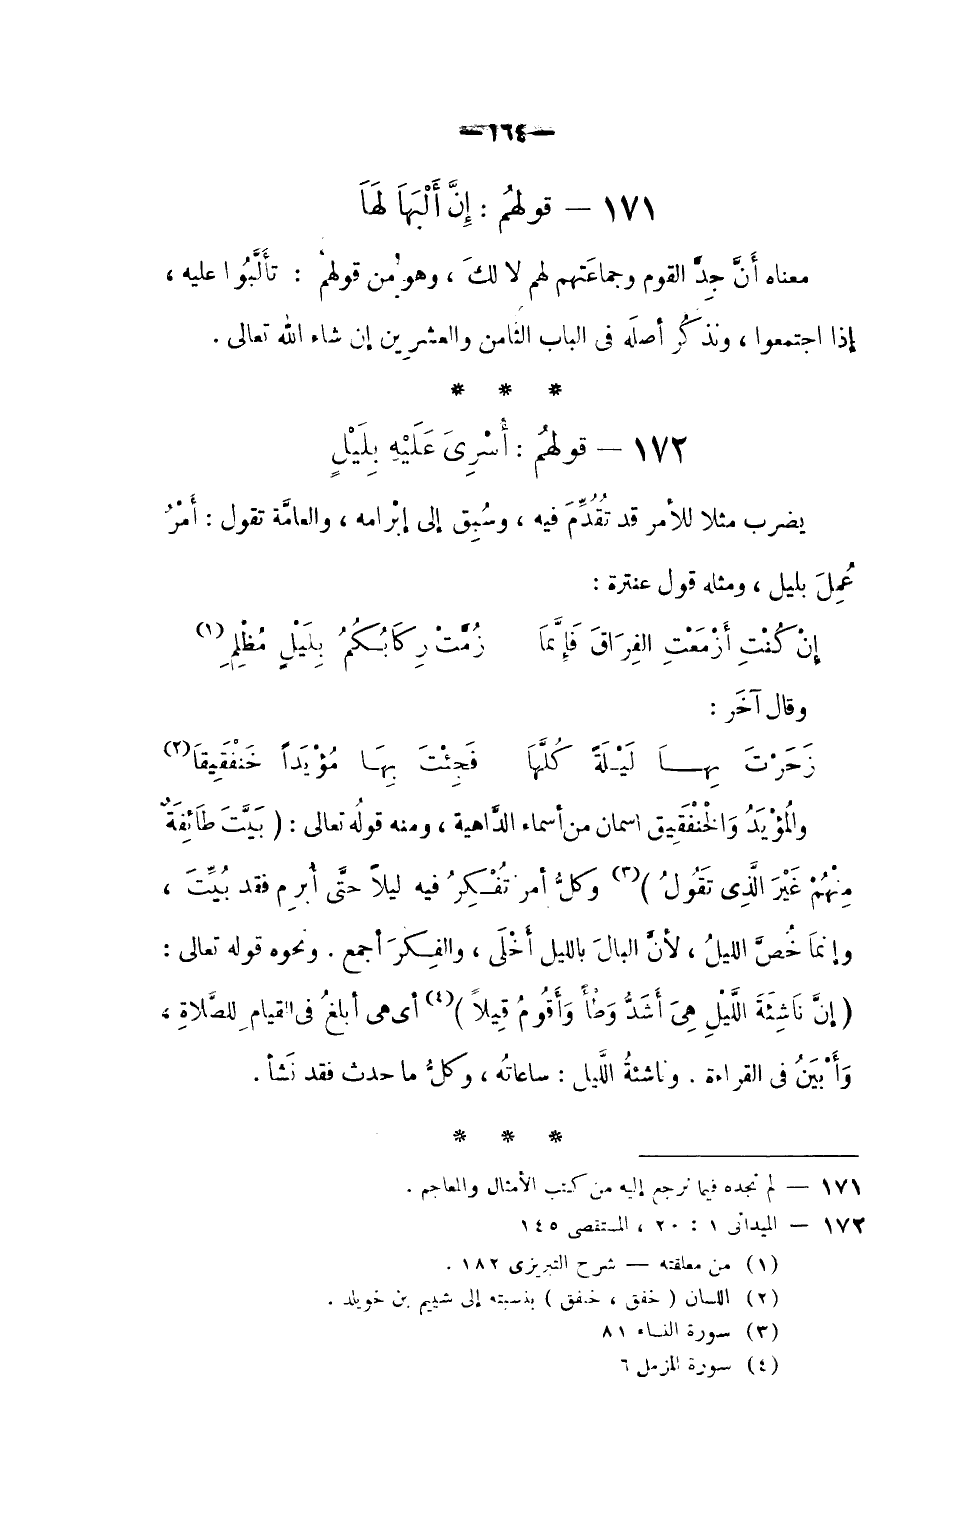 —١٦٤—
١٧١ — قولهُم : إِنَّ أَلْبَهَا لَهَا
معناه أَنَّ جِدَّ القوم وجماعَتهم لهم لا لكَ ، وهو من قولهمْ : تأَلَّبُوا عليه ،
إذا اجتمعوا ، ونذكُر أصلَه فى الباب الثَامن والعشرِين إن شاء اللّٰه تعالى .
* * *
١٧٢ — قولهُم : أُسْرِىَ عَلَيْهِ بِلَيْلٍ
يضرب مثلا للأمر قد تُقُدِّمَ فيه ، وسُبِق إلى إبْرامه ، والعامَّة تقول : أمْرٌ
عُمِلَ بليل ، ومثله قول عنترة :
إِنْ كُنْتِ أَزْمَعْتِ الفِرَاقَ فَإِنَّمَا زُمَّتْ رِكَابُكُمُ بِلَيْلٍ مُظْلِمِ (١)
وقال آخَر :
زَحَرْتَ بِهَا لَيْلَةً كُلَّهَا فَجِئْتَ بِهَا مُؤْيَدًا خَنْفَقِيقَا (٢)
والْمُؤْيَدُ وَالْخنْفَقِيق اسمان من أسماء الدَّاهية ، ومنه قولُه تعالى : ( بَيَّتَ طَائِفَةٌ
مِنْهُمْ غَيْرَ الَّذِى تَقُولُ ) (٣) وكلُّ أمر تُفْكِرُ فيه ليلاً حتَّى أُبرِم فقد بُيِّتَ ،
وإنمَا خُصَّ الليلُ ، لأنَّ البالَ بالليل أَخْلَى ، والفِكرَ أجمع . ونحوه قوله تعالى :
( إنَّ نَاشِئَةَ اللَّيْلِ هِىَ أَشَدُّ وَطْأً وَأَقْومُ قِيلاً ) (٤) أى هى أبلغُ فى القيام للصَّلاةِ ،
وَأَبْيَنُ فى القراءة . وناشئةُ اللَّيل : ساعاتهُ ، وكلُّ ما حدث فقد نَشأ .
* * *
١٧١ — لم نجده فيما نرجع إليه من كتب الأمثال والمعاجم .
١٧٢ — الميدانى ١ : ٢٠ ، المستقصى ١٤٥
(١) من معلقته — شرح التبريزى ١٨٢ .
(٢) اللسان ( خفق ، خنفق ) بنسبته إلى شييم بن خويلد .
(٣) سورة النساء ٨١
(٤) سورة المزمل ٦